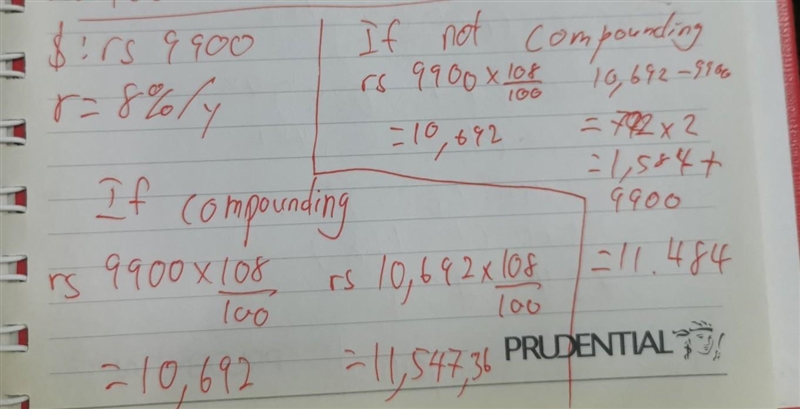 $ : rs 9900
r = 8%/y
If not compounding
rs 9900 × 108/100
= 10,692
10,692 - 9900
= 792 × 2
= 1,584 +
9900
= 11.484
If compounding
rs 9900 × 108/100
= 10,692
rs 10,692 × 108/100
= 11,547,36
PRUDENTIAL